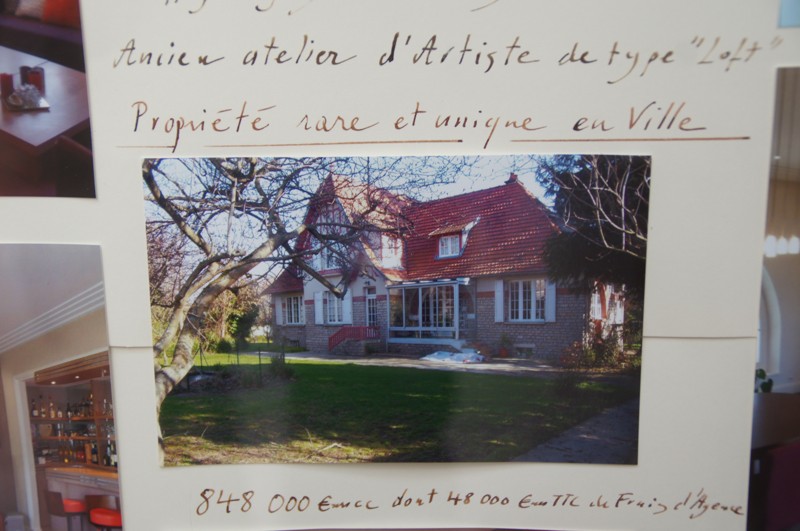 Ancien atelier d'Artiste de type "Loft"
Propriété rare et unique en Ville
848 000 Euros dont 48 000 Euros TTC de Frais d'Agence